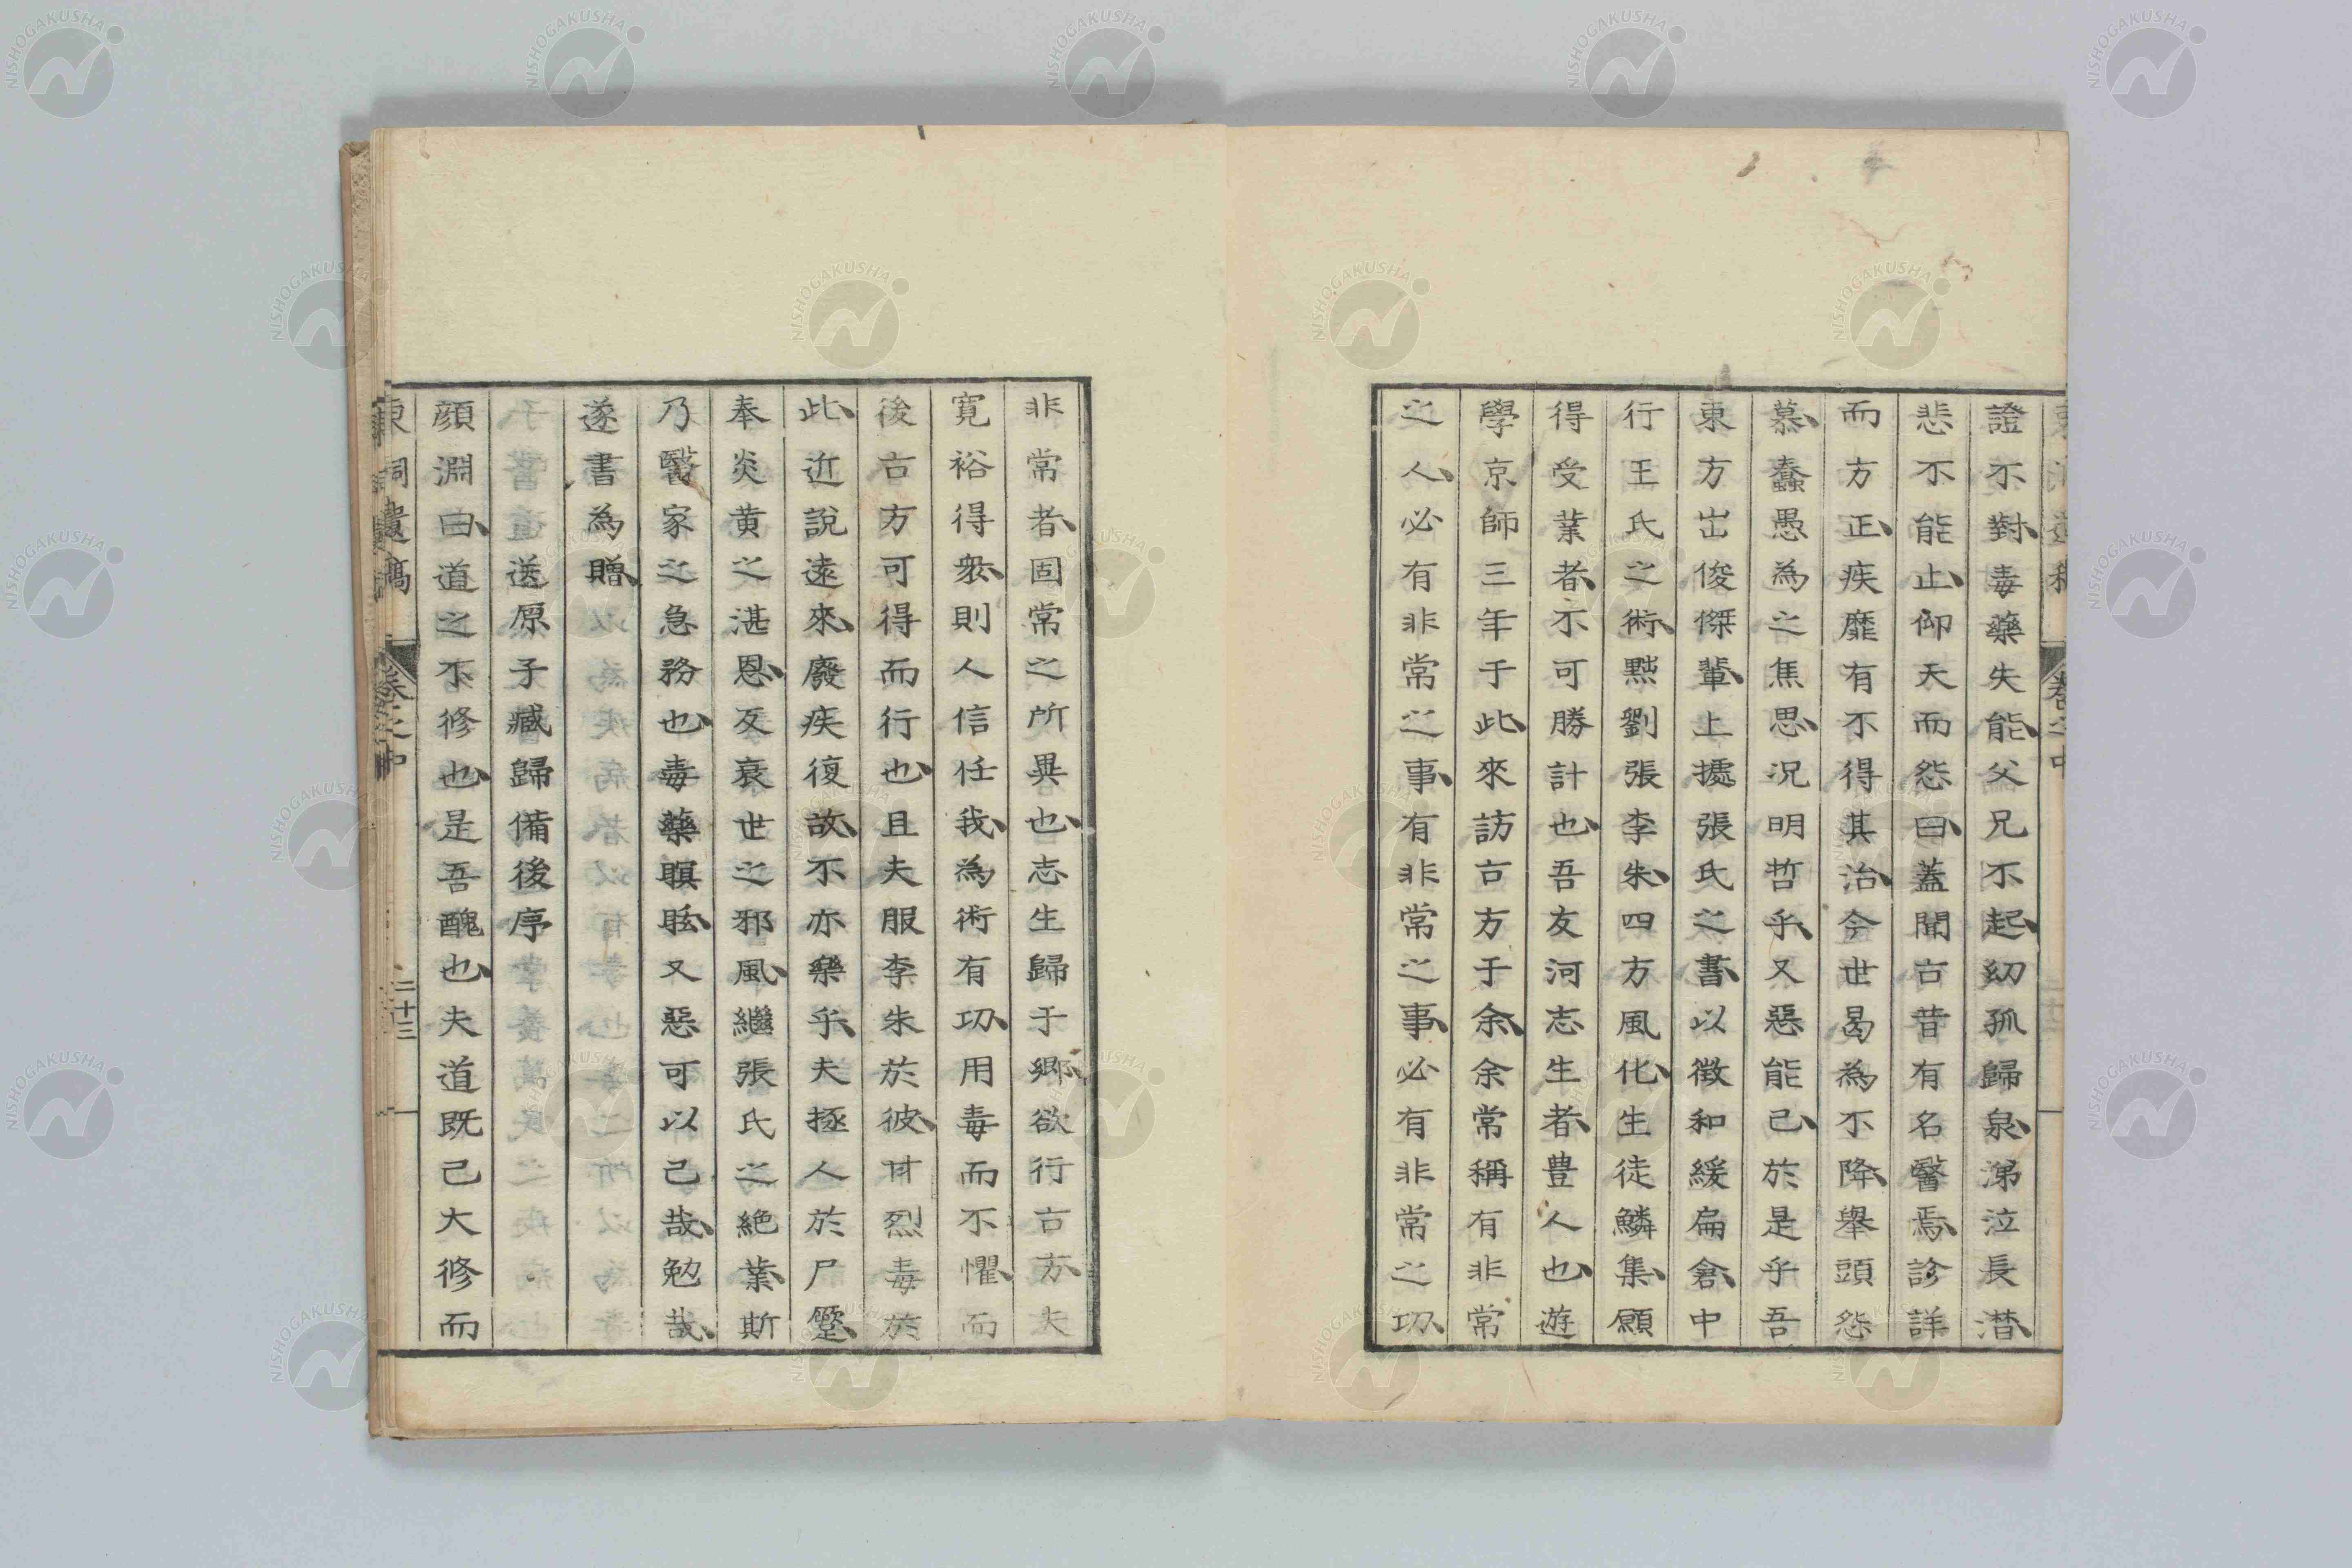 證不對、毒藥失能、父兄不起、幼孤歸泉、涕泣長潸、
悲不能止、仰天而怨曰、蓋聞古昔有名醫焉、診詳
而方正、疾靡有不得其治、今世曷為不降、舉頭怨
慕、蠢愚為之焦思、況明哲乎、又惡能已、於是乎吾
東方出俊傑輩、上據張氏之書、以徵和緩扁倉、中
行王氏之術、黙劉張李朱、四方風化、生徒鱗集、願
得受業者、不可勝計也、吾友河志生者、豊人也、遊
學京師三年于此、來訪古方于余、余常稱有非常
之人、必有非常之事、有非常之事、必有非常之功、
非常者、固常之所異也、志生歸于鄉、欲行古方、夫
寬裕得衆、則人信任我、為術有功、用毒而不懼、而
後古方可得而行也、且夫服李朱於彼、甘烈毒於
此、近說遠來、廢疾復故、不亦樂乎、夫拯人於尸蹷、
奉炎黃之湛恩、反衰世之邪風、繼張氏之絕業、斯
乃醫家之急務也、毒藥瞑眩、又惡可以已哉、勉哉、
遂書為贈、
送原子臧歸備後序
顏淵曰、道之不修也、是吾醜也、夫道既已大修而
東洞遺稿 卷之中 二十三